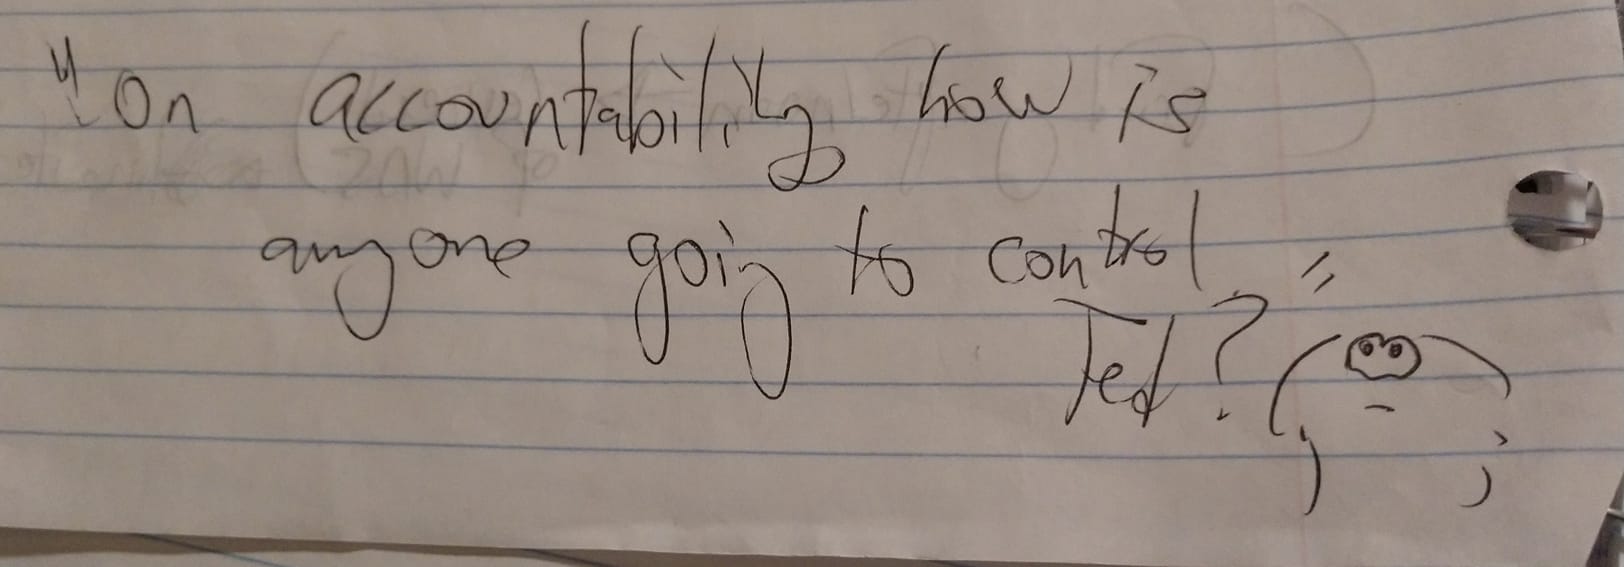 "On accountability how is
anyone going to control
Ted?"